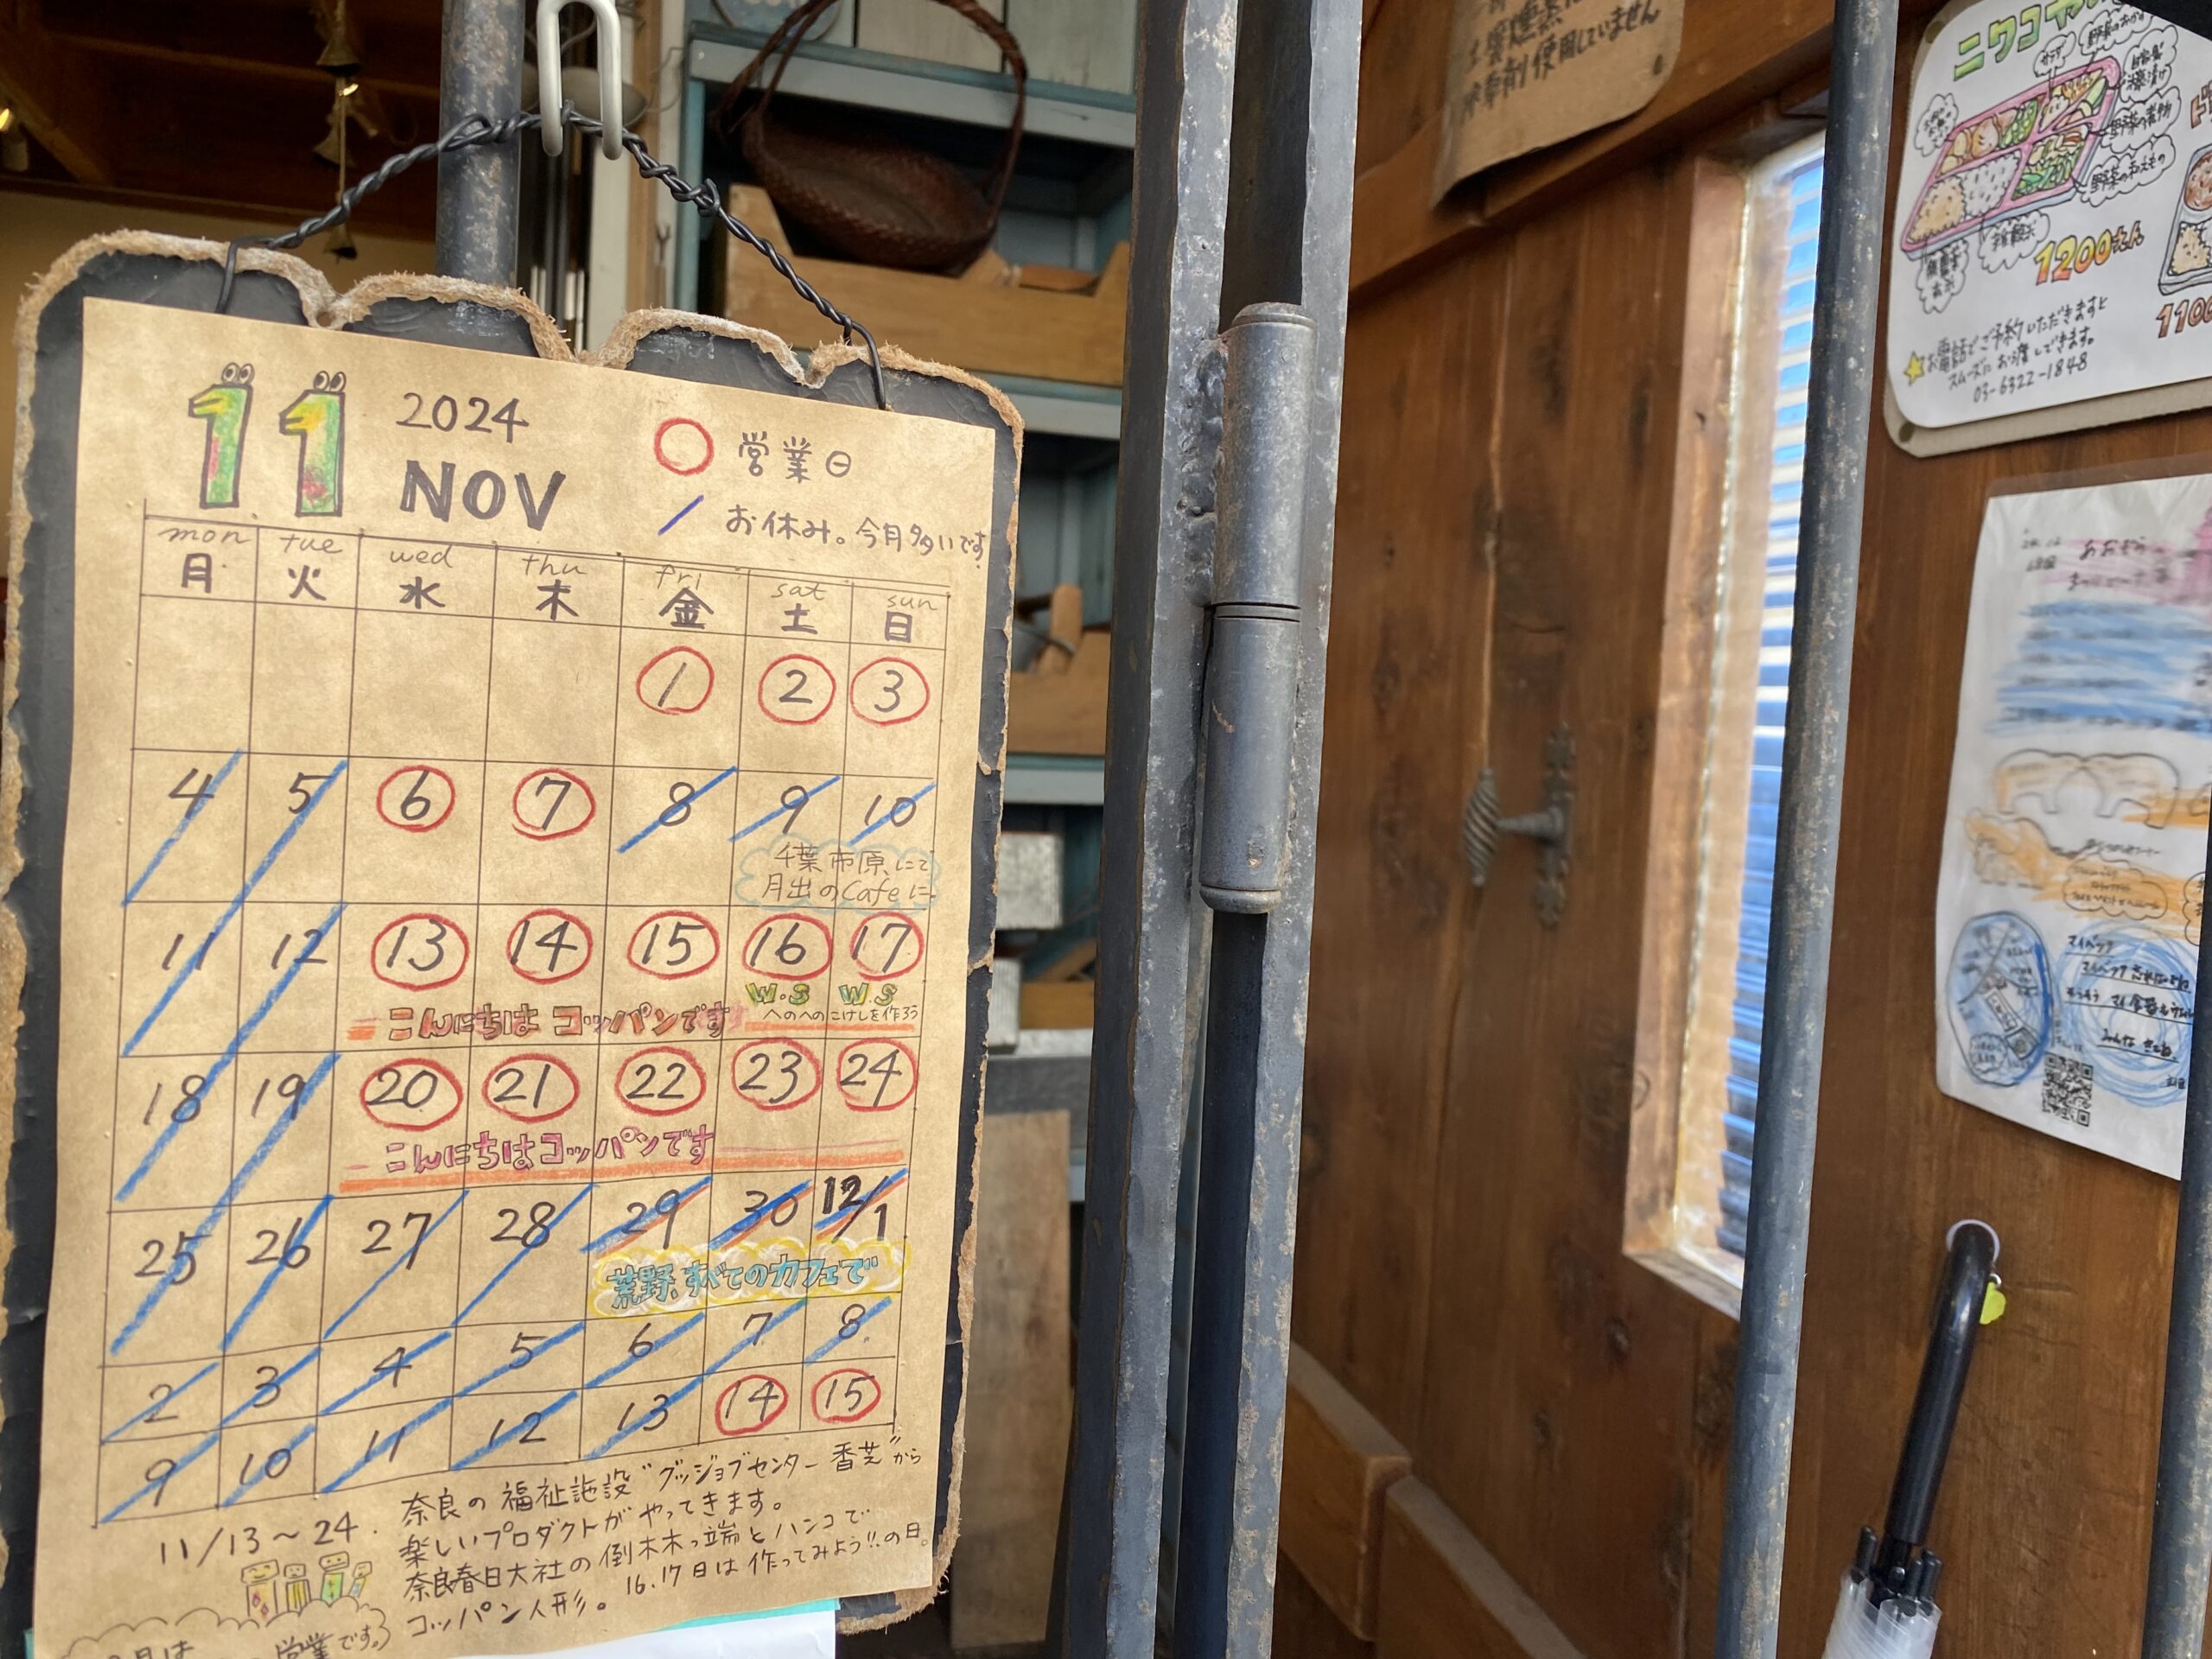 11
2024
NOV
営業日
お休み。今月多いです
mon tue wed thu fri sat sun
月 火 水 木 金 土 日
1 2 3
4 5 6 7 8 9 10
千葉市原にて
月出のCafeに
11 12 13 14 15 16 17
W.S W.S
こんにちは コッパンです
へのへのこけしを作ろう
18 19 20 21 22 23 24
こんにちはコッパンです
25 26 27 28 29 30 12/1
荒野、すべてのカフェで
2 3 4 5 6 7 8
9 10 11 12 13 14 15
11/13~24.
奈良の福祉施設"グッジョブセンター香芝"から
楽しいプロダクトがやってきます。
奈良春日大社の倒木木っ端とハンコで
コッパン人形。16.17日は作ってみよう!!の日。
営業です。
使用していません
ニワコヤ
サラダ
野菜の煮物
野菜の和えもの
1200えん
1100
お電話でご予約いただきますと
スムーズにお渡しできます。
03-6322-1848
マイバック
みんな